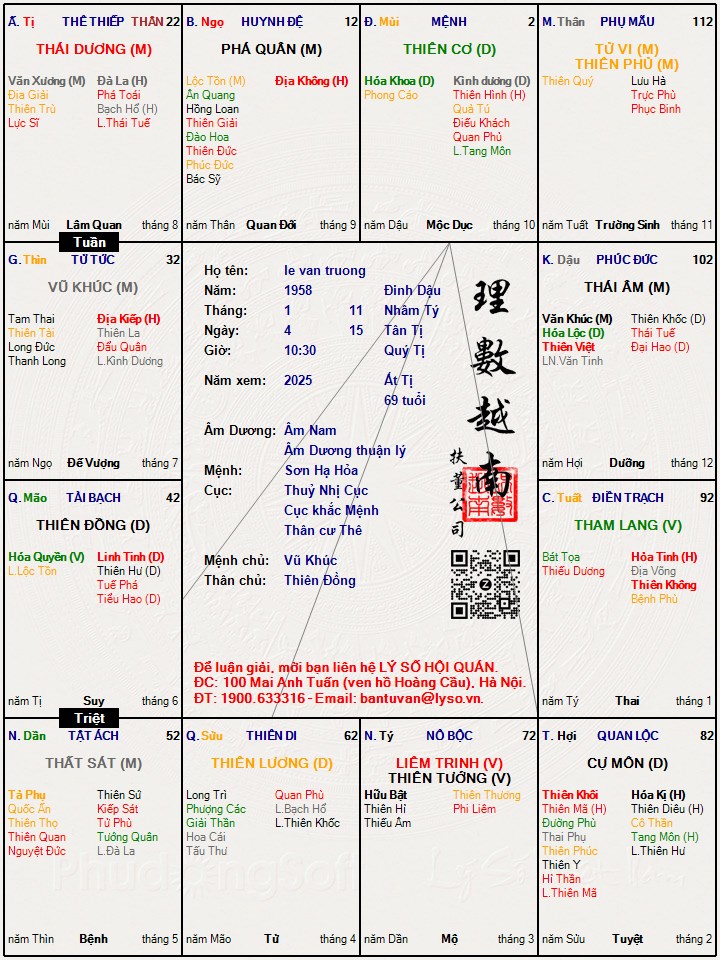 Ấ. Tị THÊ THIẾP THÂN 22
THÁI DƯƠNG (M)
Văn Xương (M) Đà La (H)
Địa Giải Phá Toái
Thiên Trù Bạch Hổ (H)
Lực Sĩ L.Thái Tuế
năm Mùi Lâm Quan tháng 8
B. Ngọ HUYNH ĐỆ 12
PHÁ QUÂN (M)
Lộc Tồn (M) Địa Không (H)
Ân Quang
Hồng Loan
Thiên Giải
Đào Hoa
Thiên Đức
Phúc Đức
Bác Sỹ
năm Thân Quan Đới tháng 9
Đ. Mùi MỆNH 2
THIÊN CƠ (D)
Hóa Khoa (D) Kình dương (D)
Phong Cáo Thiên Hình (H)
Quả Tú
Điếu Khách
Quan Phủ
L.Tang Môn
năm Dậu Mộc Dục tháng 10
M. Thân PHỤ MẪU 112
TỬ VI (M)
THIÊN PHỦ (M)
Thiên Quý Lưu Hà
Trực Phù
Phục Binh
năm Tuất Trường Sinh tháng 11
Tuần
G. Thìn TỬ TỨC 32
VŨ KHÚC (M)
Tam Thai Địa Kiếp (H)
Thiên Tài Thiên La
Long Đức Đẩu Quân
Thanh Long L.Kình Dương
năm Ngọ Đế Vượng tháng 7
Họ tên: le van truong
Năm: 1958 Đinh Dậu
Tháng: 1 11 Nhâm Tý
Ngày: 4 15 Tân Tị
Giờ: 10:30 Quý Tị
Năm xem: 2025 Ất Tị
69 tuổi
Âm Dương: Âm Nam
Âm Dương thuận lý
Mệnh: Sơn Hạ Hỏa
Cục: Thuỷ Nhị Cục
Cục khắc Mệnh
Thân cư Thê
Mệnh chủ: Vũ Khúc
Thân chủ: Thiên Đồng
理數越南
扶董公司
Để luận giải, mời bạn liên hệ LÝ SỐ HỘI QUÁN.
ĐC: 100 Mai Anh Tuấn (ven hồ Hoàng Cầu), Hà Nội.
ĐT: 1900.633316 - Email: bantuvan@lyso.vn.
K. Dậu PHÚC ĐỨC 102
THÁI ÂM (M)
Văn Khúc (M) Thiên Khốc (D)
Hóa Lộc (D) Thái Tuế
Thiên Việt Đại Hao (D)
LN.Văn Tinh
năm Hợi Dưỡng tháng 12
Q. Mão TÀI BẠCH 42
THIÊN ĐỒNG (D)
Hóa Quyền (V) Linh Tinh (D)
L.Lộc Tồn Thiên Hư (D)
Tuế Phá
Tiểu Hao (D)
năm Tị Suy tháng 6
C. Tuất ĐIỀN TRẠCH 92
THAM LANG (V)
Bát Tọa Hỏa Tinh (H)
Thiếu Dương Địa Võng
Thiên Không
Bệnh Phù
năm Tý Thai tháng 1
Triệt
N. Dần TẬT ÁCH 52
THẤT SÁT (M)
Tả Phụ Thiên Sứ
Quốc Ấn Kiếp Sát
Thiên Thọ Tử Phù
Thiên Quan Tướng Quân
Nguyệt Đức L.Đà La
năm Thìn Bệnh tháng 5
Q. Sửu THIÊN DI 62
THIÊN LƯƠNG (D)
Long Trì Quan Phù
Phượng Các L.Bạch Hổ
Giải Thần L.Thiên Khốc
Hoa Cái
Tấu Thư
năm Mão Tử tháng 4
N. Tý NÔ BỘC 72
LIÊM TRINH (V)
THIÊN TƯỚNG (V)
Hữu Bật Thiên Thương
Thiên Hỉ Phi Liêm
Thiếu Âm
năm Dần Mộ tháng 3
T. Hợi QUAN LỘC 82
CỰ MÔN (D)
Thiên Khôi Hóa Kị (H)
Thiên Mã (H) Thiên Diêu (H)
Đường Phù Cô Thần
Thai Phụ Tang Môn (H)
Thiên Phúc L.Thiên Hư
Thiên Y
Hỉ Thần
L.Thiên Mã
năm Sửu Tuyệt tháng 2